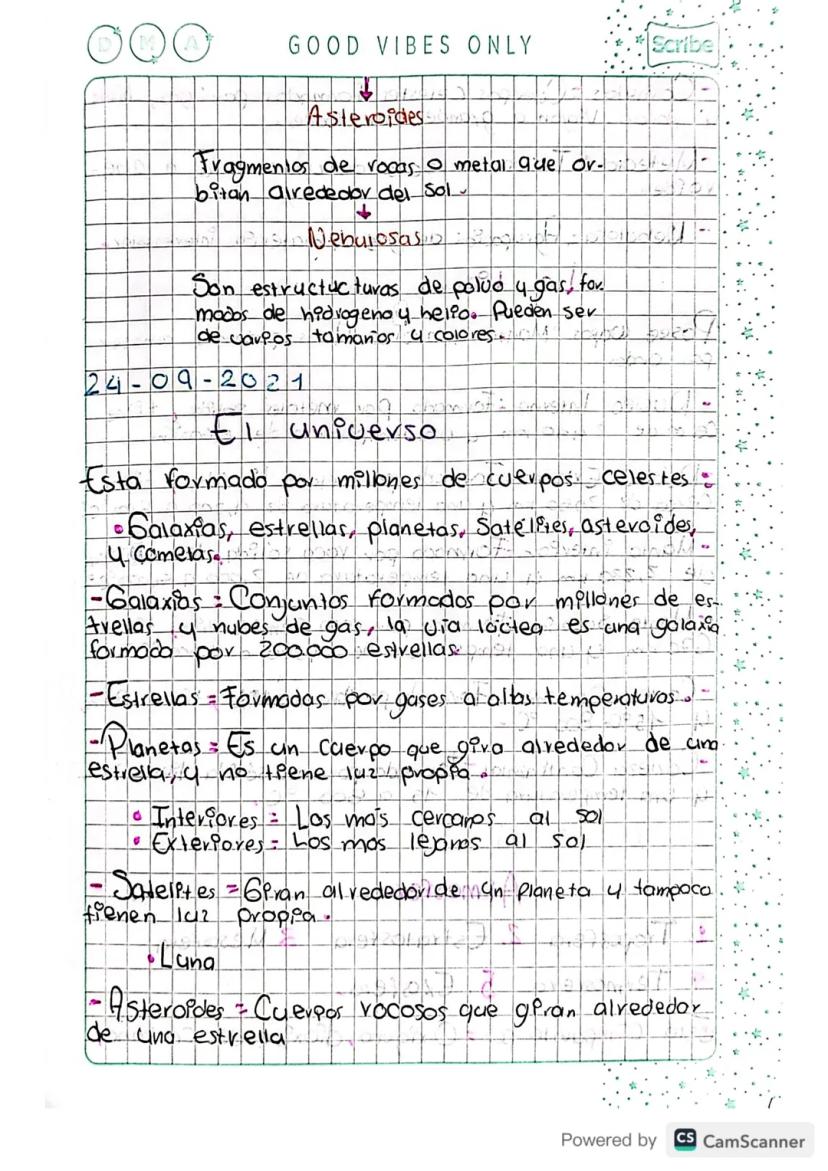 D M A GOOD VIBES ONLY Scribe
Asteroides
Fragmentos de rocas o metal que or-
bitan alrededor del sol.
Nebulosas
Son estructucturas de polvo y gas, for
mados de hidrogeno y helio. Pueden ser
de varios tamaños y colores.
24-09-2021
El universo
Esta formado por millones de cuerpos celestes:
• Galaxias, estrellas, planetas, satelites, asteroides,
y cometas.
- Galaxias: Conjuntos formados por millones de es-
trellas y nubes de gas, la via lactea es una galaxia
formada por 200.000 estrellas.
- Estrellas = Formadas por gases a altas temperaturas.
- Planetas: Es un cuerpo que gira alrededor de una
estrella, y no tiene luz propia.
• Interiores = Los más cercanos al sol
• Exteriores = Los mas lejanos al sol
- Satelites = Giran alrededor de un planeta y tampoco
tienen luz propia.
• Luna
- Asteroides = Cuerpos rocosos que giran alrededor
de una estrella
Powered by CS CamScanner